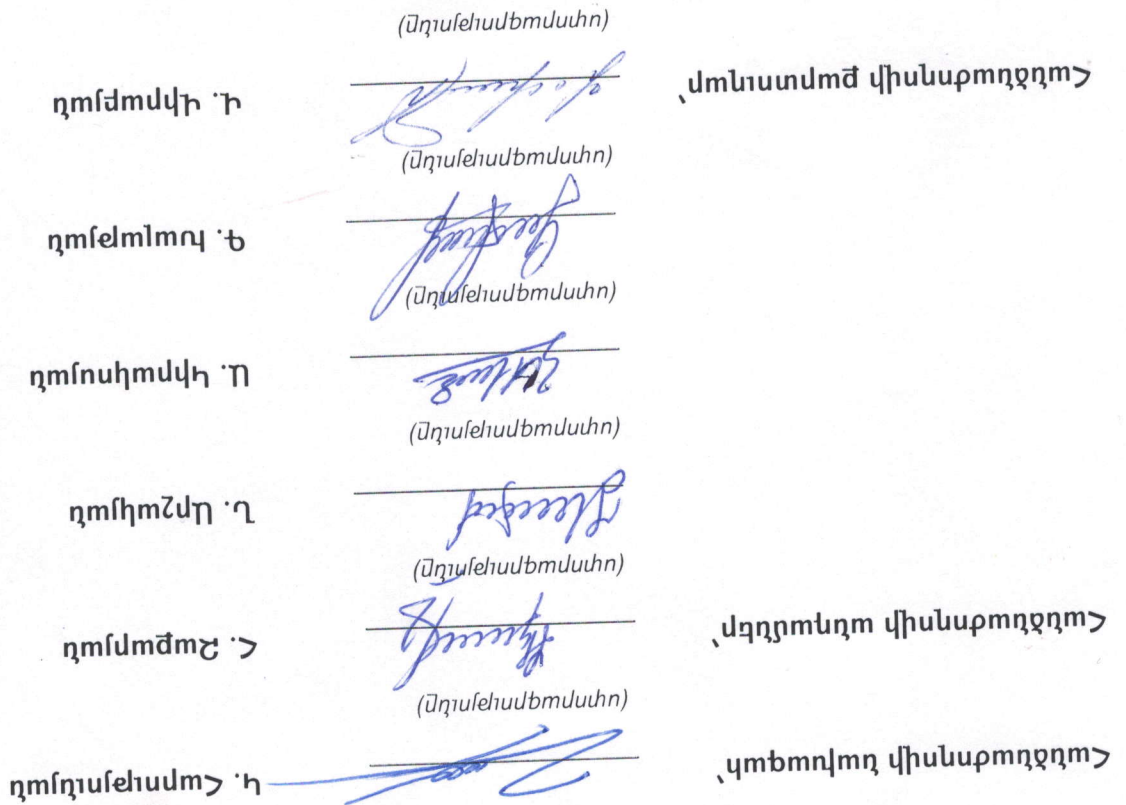 Հանձնաժողովի նախագահ՝ Կ. Հարությունյան
(ստորագրություն)
Հանձնաժողովի անդամներ՝ Հ. Զաքարյան
(ստորագրություն)
Ն. Արշակյան
(ստորագրություն)
Ա. Կիրակոսյան
(ստորագրություն)
Գ. Խալաթյան
(ստորագրություն)
Հանձնաժողովի քարտուղար՝ Վ. Վիրաբյան
(ստորագրություն)